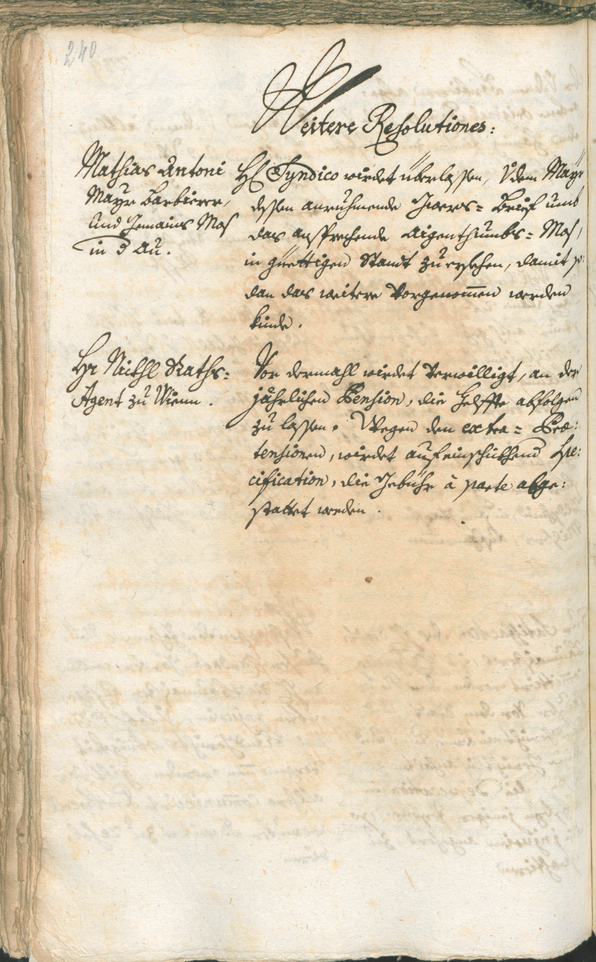 240
Weitere Resolutiones:
Mathias Antoni
Mayr Barbierer,
und Jemains Mos
in d Au.
H Syndico wirdet überlassen, dem Mayr
dessen anruhmende = Brief umb
das ansprechende Aigenthumbs = Mos,
in güettigen Standt zu ersehen, damit so
dan das weitere Vorgenommen werden
künde.
Hr Nichl Raths=
Agent zu Wienn.
Vor dermahl wirdet Verwilligt, an der
jährlichen Pension, die Helffte abfolgen
zu lassen. Wegen den extra = Præ=
tensionen, wirdet auf einschickhend Spe:
cification, die Gebühr à parte abge:
stattet werden.